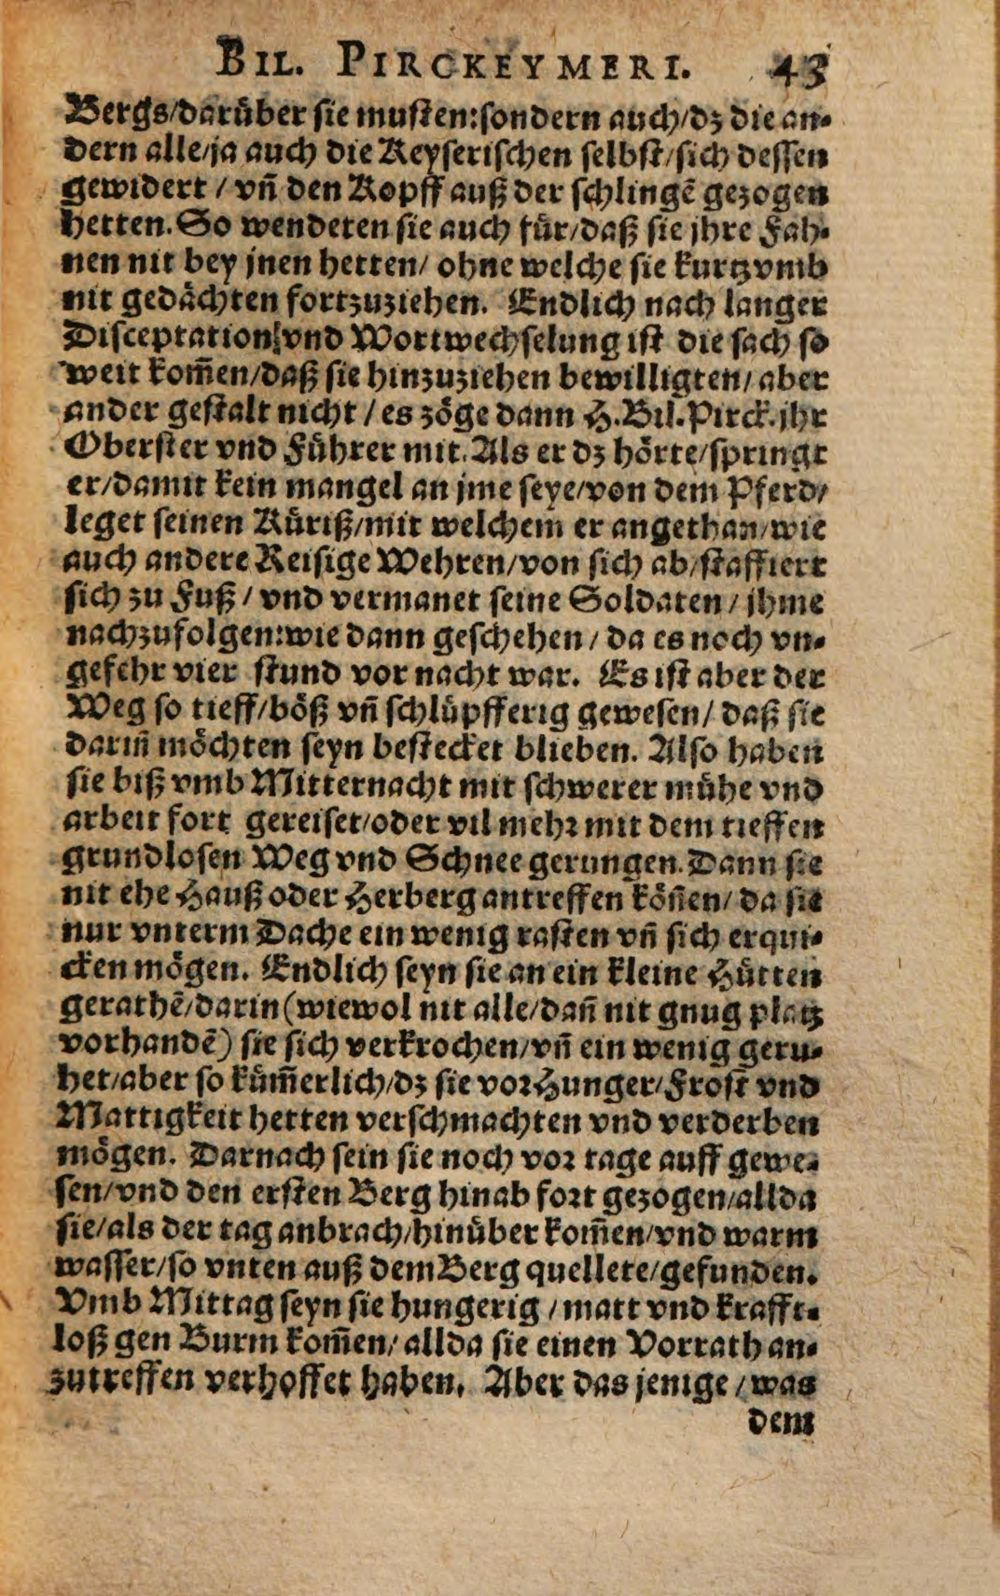 BIL. PIRCKEYMERI. 43
Bergs/darüber sie musten:sondern auch/dz die an-
dern alle/ja auch die Keyserischen selbst/sich dessen
gewidert / vñ den Kopff auß der schlingē gezogen
hetten. So wenderen sie auch für/daß sie jhre Fah-
nen nit bey jnen hetten/ ohne welche sie kurtzvmb
nit gedächten fortzuziehen. Endlich nach langer
Disceptation/vnd Wortwechselung ist die sach so
weit kom̄en/daß sie hinzuziehen bewilligten/ aber
ander gestalt nicht / es zöge dann H.Bil.Pirck.jhr
Oberster vnd Führer mit. Als er dz hörte/springt
er/damit kein mangel an jme seye/von dem Pferd/
leget seinen Küriß/mit welchem er angethan/wie
auch andere Reisige Wehren/von sich ab/staffiert
sich zu Fuß / vnd vermanet seine Soldaten / jhme
nachzufolgen:wie dann geschehen / da es noch vn-
gefehr vier stund vor nacht war. Es ist aber der
Weg so tieff/böß vñ schlüpfferig gewesen/ daß sie
darin̄ möchten seyn bestecket blieben. Also haben
sie biß vmb Mitternacht mit schwerer mühe vnd
arbeit fort gereiset/oder vil mehr mit dem tieffen
grundlosen Weg vnd Schnee gerungen. Dann sie
nit ehe Hauß oder Herberg antreffen kön̄en/ da sie
nur vnterm Dache ein wenig rasten vñ sich erqui-
cken mögen. Endlich seyn sie an ein kleine Hütten
gerathē/darin (wiewol nit alle/dañ nit gnug platz
vorhandē) sie sich verkrochen/vñ ein wenig geru-
het/aber so küm̄erlich/dz sie vor Hunger/Frost vnd
Mattigkeit hetten verschmachten vnd verderben
mögen. Darnach sein sie noch vor tage auff gewe-
sen/vnd den ersten Berg hinab fort gezogen/allda
sie/als der tag anbrach/hinüber kom̄en/vnd warm
wasser/so vnten auß dem Berg quellete/gefunden.
Vmb Mittag seyn sie hungerig / matt vnd krafft-
loß gen Burm kom̄en/ allda sie einen Vorrath an-
zutreffen verhoffet haben. Aber das jenige / was
dem